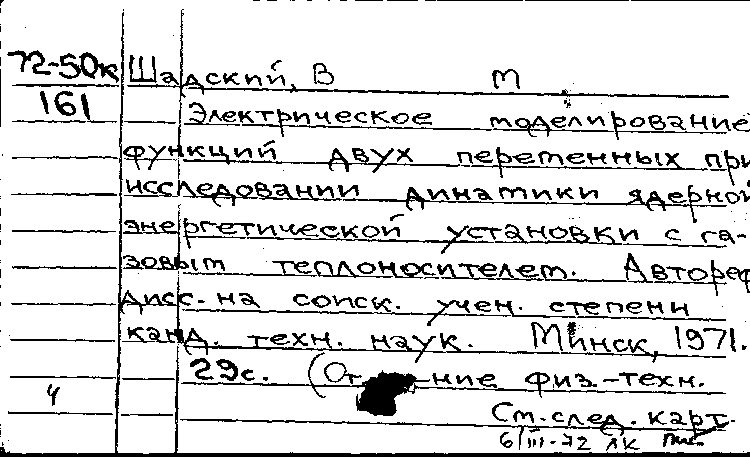 72-50к Шадский, В М
161 Электрическое моделирование
функций двух переменных при
исследовании динамики ядерной
энергетической установки с га-
зовым теплоносителем. Автореф
дисс. на соиск. учен. степени
канд. техн. наук. Минск, 1971.
29с. (От ние физ.-техн.
4 См. след. карт.
6/III-72 ЛК